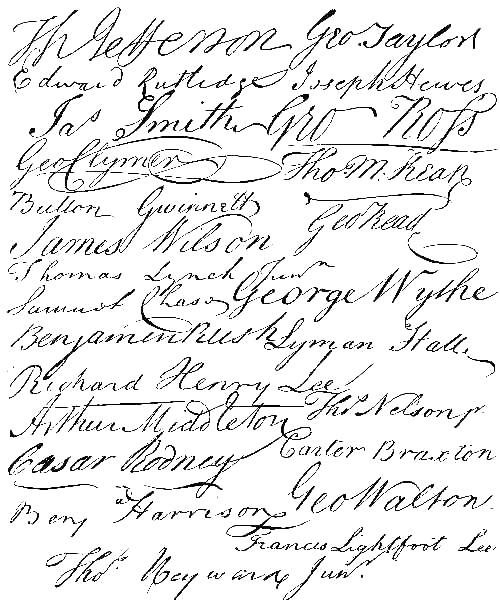 Th Jefferson Geo. Taylor
Edward Rutledge Joseph Hewes
Jas Smith Geo Ross
Geo Clymer Tho M. Kean
Button Gwinnett Geo Read
James Wilson
Thomas Lynch Junr
Samuel Chase George Wythe
Benjamin Rush Lyman Hall
Richard Henry Lee
Arthur Middleton Thos Nelson jr
Cæsar Rodney Carter Braxton
Benj a Harrison Geo Walton
Francis Lightfoot Lee
Thos Heyward Junr